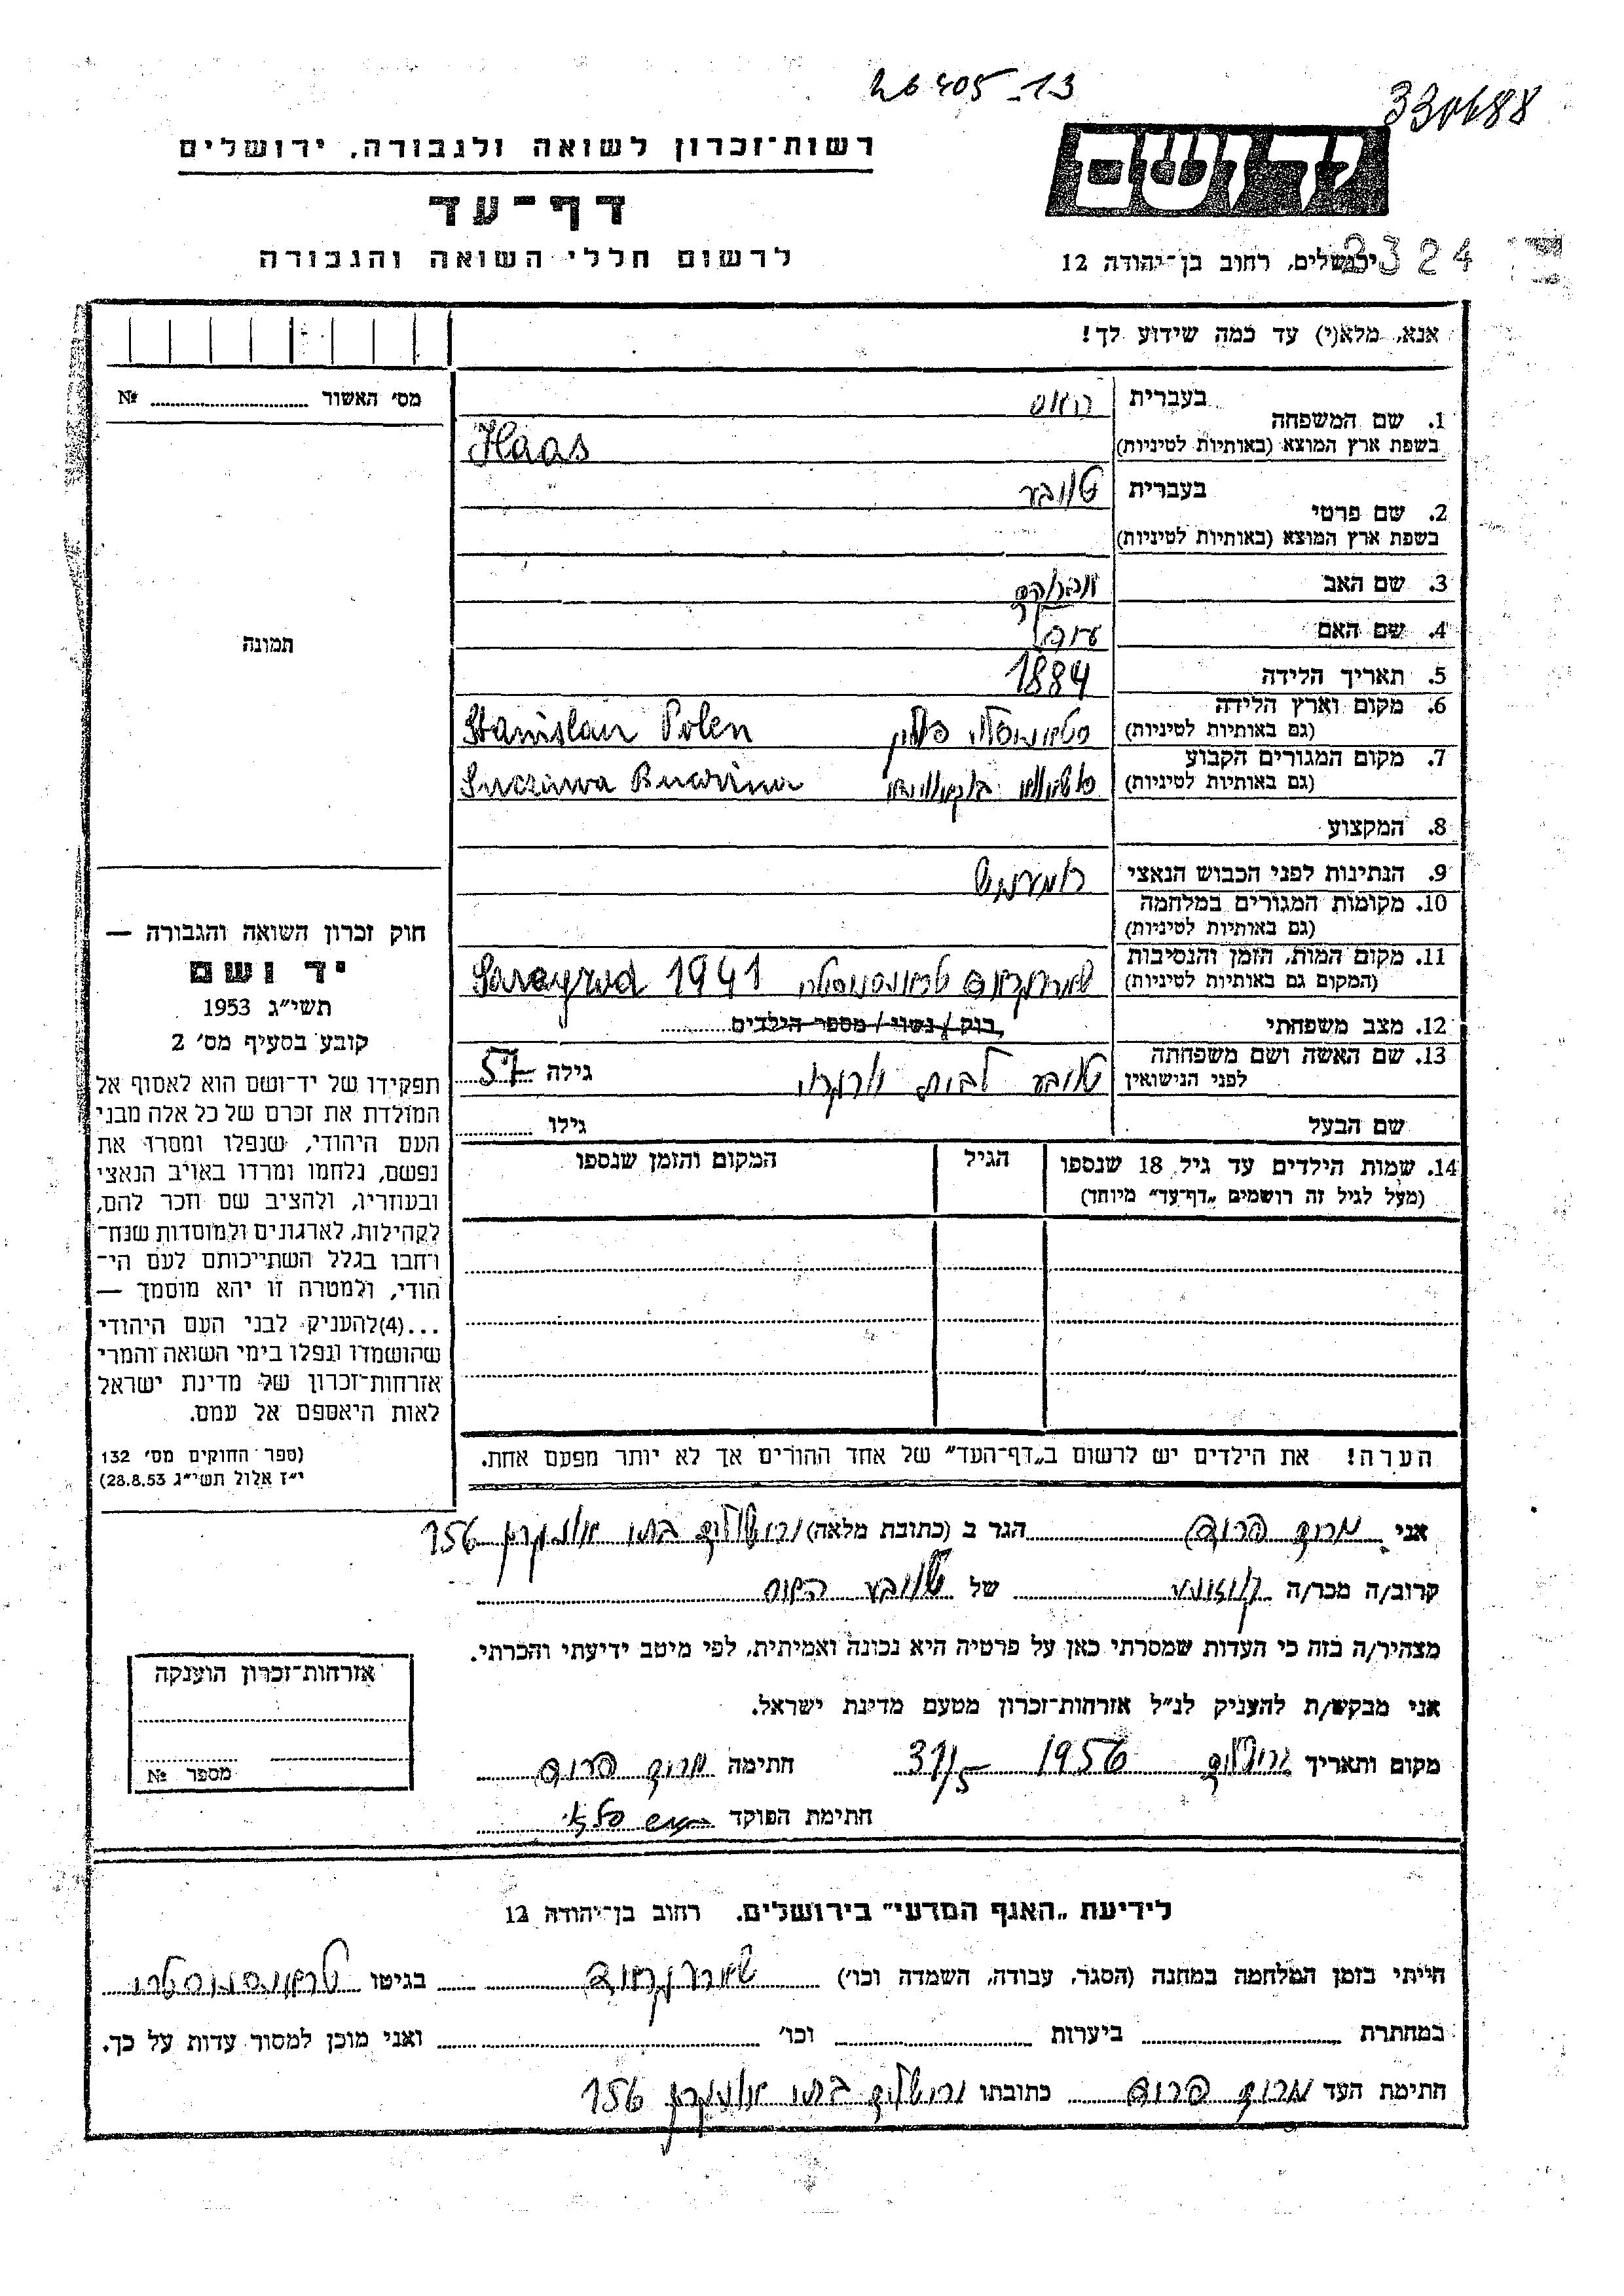 26405-13
330688
רשות־זכרון לשואה ולגבורה, ירושלים
דף־עד
לרשום חללי השואה והגבורה
יד ושם
ירושלים, רחוב בן־יהודה 12
3324
אנא, מלא(י) עד כמה שידוע לך!
מס׳ האשור № 
1. שם המשפחה
בעברית האס
בשפת ארץ המוצא (באותיות לטיניות) Haas
2. שם פרטי
בעברית טובע
בשפת ארץ המוצא (באותיות לטיניות)
3. שם האב אברהם
4. שם האם
5. תאריך הלידה 1884
6. מקום וארץ הלידה
(גם באותיות לטיניות) פולין Stanislau Polen
7. מקום המגורים הקבוע
(גם באותיות לטיניות) Suczawa Bucovina
8. המקצוע
9. הנתינות לפני הכבוש הנאצי
10. מקומות המגורים במלחמה
(גם באותיות לטיניות)
11. מקום המות, הזמן והנסיבות
(המקום גם באותיות לטיניות) טראנסניסטרי 1941
12. מצב משפחתי רווק / נשוי / מספר הילדים
13. שם האשה ושם משפחתה
לפני הנישואין טובע לבית גילה 57
שם הבעל גילו
14. שמות הילדים עד גיל 18 שנספו
(מעל לגיל זה רושמים „דף־עד״ מיוחד)
הגיל
המקום והזמן שנספו
תמונה
חוק זכרון השואה והגבורה —
יד ושם
תשי״ג 1953
קובע בסעיף מס׳ 2
תפקידו של יד־ושם הוא לאסוף אל
המולדת את זכרם של כל אלה מבני
העם היהודי, שנפלו ומסרו את
נפשם, נלחמו ומרדו באויב הנאצי
ובעוזריו, ולהציב שם וזכר להם,
לקהילות, לארגונים ולמוסדות שנח־
רבו בגלל השתייכותם לעם הי־
הודי, ולמטרה זו יהא מוסמך —
...(4)להעניק לבני העם היהודי
שהושמדו ונפלו בימי השואה והמרי
אזרחות־זכרון של מדינת ישראל
לאות היאספם אל עמם.
(ספר החוקים מס׳ 132
י״ז אלול תשי״ג 28.8.53)
הערה! את הילדים יש לרשום ב„דף־העד״ של אחד ההורים אך לא יותר מפעם אחת.
אני הגר ב (כתובת מלאה) ירושלים בתי 156
קרוב/ה מכר/ה קוזינע של טובע האס
מצהיר/ה בזה כי העדות שמסרתי כאן על פרטיה היא נכונה ואמיתית, לפי מיטב ידיעתי והכרתי.
אני מבקש/ת להעניק לנ״ל אזרחות־זכרון מטעם מדינת ישראל.
מקום ותאריך ירושלים 1956 31/5 חתימה
חתימת הפוקד
אזרחות־זכרון הוענקה
מספר №
לידיעת „האגף המדעי״ בירושלים, רחוב בן־יהודה 12
הייתי בזמן המלחמה במחנה (הסגר, עבודה, השמדה וכו׳) בגיטו טראנסניסטרי
במחתרת ביערות וכו׳ ואני מוכן למסור עדות על כך.
חתימת העד כתובתו ירושלים בתי 156